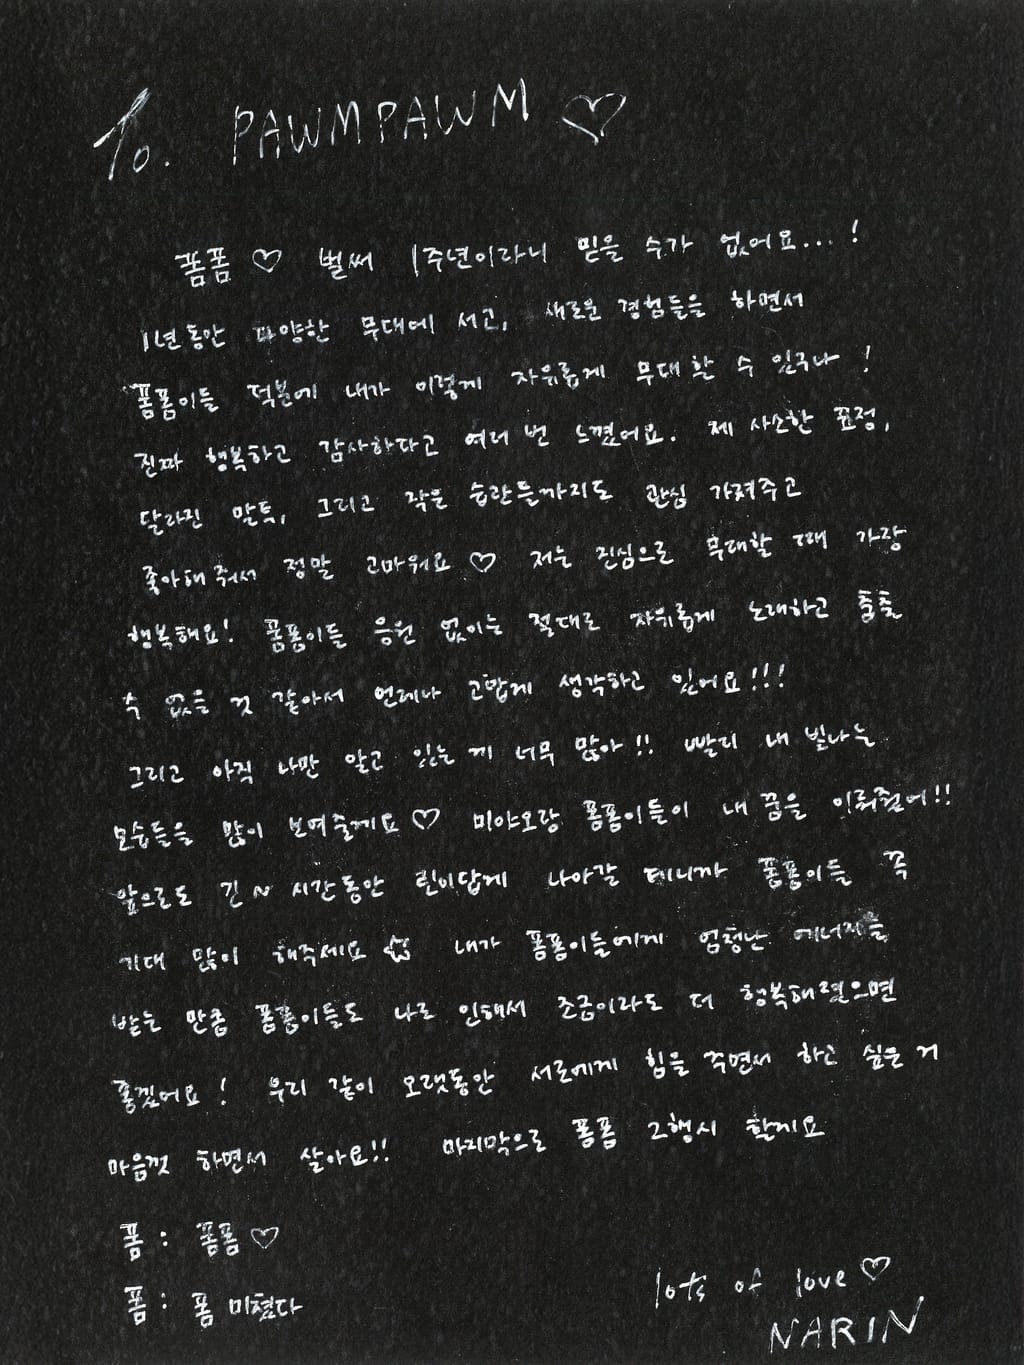 To. PAWMPAWM ♡
폼폼 ♡ 벌써 1주년이라니 믿을 수가 없어요...!
1년동안 다양한 무대에 서고, 새로운 경험들을 하면서
폼폼이들 덕분에 내가 이렇게 자유롭게 무대할 수 있구나!
진짜 행복하고 감사하다고 여러번 느꼈어요. 제 사소한 표정,
달라진 말투, 그리고 작은 습관들까지도 관심 가려주고
좋아해 줘서 정말 고마워요 ♡ 저는 진심으로 무대할 때 가장
행복해요! 폼폼이들 응원 없이는 절대로 자유롭게 노래하고 춤출
수 없을 것 같아서 언제나 고맙게 생각하고 있어요!!!
그리고 아직 나만 알고 있는 게 너무 많아!! 빨리 내 빛나는
모습들을 많이 보여줄게요 ♡ 미야오랑 폼폼이들이 내 꿈을 이뤄줬어!!
앞으로도 긴~ 시간동안 린이답게 나아갈 테니까 폼폼이들 꼭
기대 많이 해주세요 ☆ 내가 폼폼이들에게 엄청난 에너지를
받는 만큼 폼폼이들도 나로 인해서 조금이라도 더 행복해졌으면
좋겠어요! 우리 같이 오랫동안 서로에게 힘을 주면서 하고 싶은 거
마음껏 하면서 살아요!! 마지막으로 폼폼 2행시 할게요
폼 : 폼폼 ♡
폼 : 폼 미쳤다
lots of love ♡
NARIN